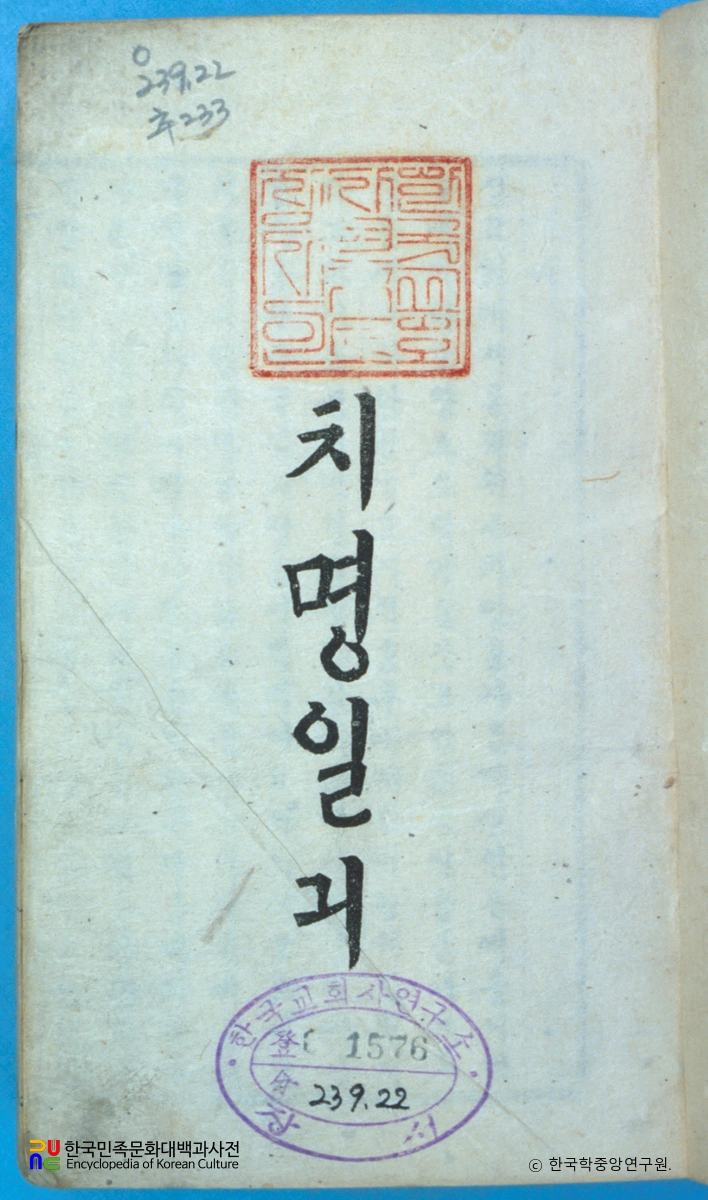 0
239.22
233
치명일긔
한국교회사연구소
登 1576
239.22
장서
한국민족문화대백과사전
Encyclopedia of Korean Culture
ⓒ 한국학중앙연구원.